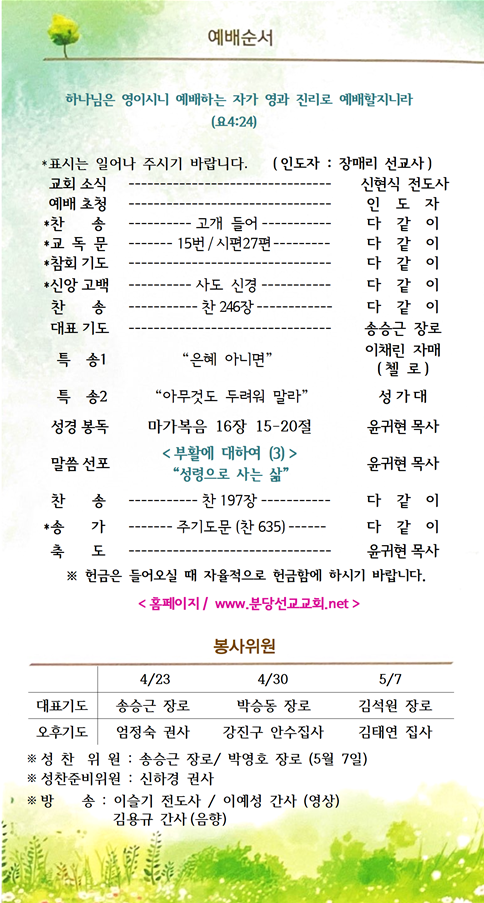 예배순서
하나님은 영이시니 예배하는 자가 영과 진리로 예배할지니라
(요4:24)
*표시는 일어나 주시기 바랍니다. (인도자 : 장매리 선교사)
교회 소식 -------------------------------- 신현식 전도사
예배 초청 -------------------------------- 인 도 자
*찬 송 ---------- 고개 들어 ----------- 다 같 이
*교 독 문 ------- 15번/시편27편--------- 다 같 이
*참회 기도 -------------------------------- 다 같 이
*신앙 고백 ---------- 사도 신경 ----------- 다 같 이
찬 송 ----------- 찬 246장 ------------ 다 같 이
대표 기도 -------------------------------- 송승근 장로
특 송1 “은혜 아니면” 이채린 자매
(첼 로)
특 송2 “아무것도 두려워 말라” 성 가 대
성경 봉독 마가복음 16장 15-20절 윤귀현 목사
말씀 선포 <부활에 대하여 (3)> 윤귀현 목사
“성령으로 사는 삶”
찬 송 ----------- 찬 197장 ----------- 다 같 이
*송 가 ------- 주기도문 (찬 635) ------ 다 같 이
축 도 -------------------------------- 윤귀현 목사
※ 헌금은 들어오실 때 자율적으로 헌금함에 하시기 바랍니다.
< 홈페이지 / www.분당선교교회.net >
봉사위원
4/23 4/30 5/7
대표기도 송승근 장로 박승동 장로 김석원 장로
오후기도 엄정숙 권사 강진구 안수집사 김태연 집사
※ 성 찬 위 원 : 송승근 장로/ 박영호 장로 (5월 7일)
※ 성찬준비위원 : 신하경 권사
※ 방 송 : 이슬기 전도사 / 이예성 간사 (영상)
김용규 간사 (음향)